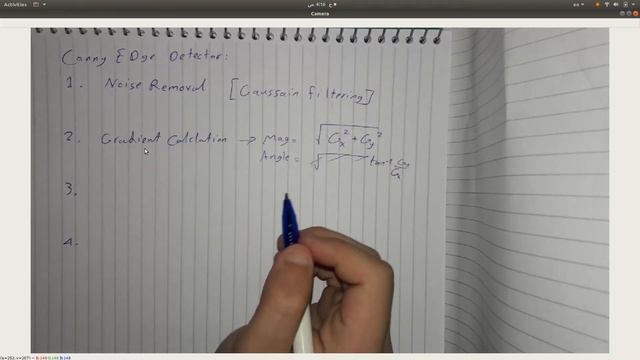 Activities
Camera
en
Canny EDge Detector:
1. Noise Removal [Gaussian filtering]
2. Gradient Calclution → Mag= √Gx² + Gy²
Angle= tan⁻¹ Gy/Gx
3.
4.